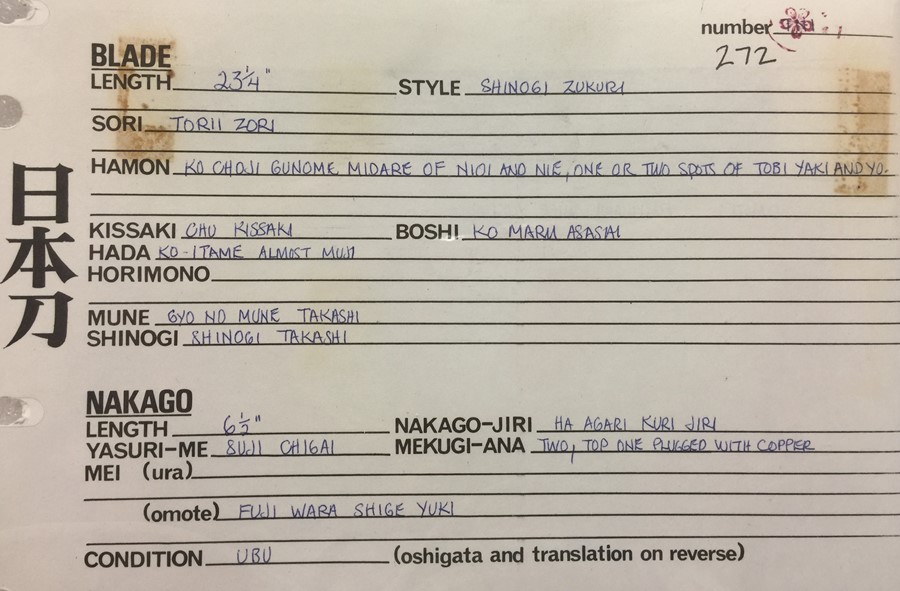 number
272
BLADE
LENGTH 23¼" STYLE SHINOGI ZUKURI
SORI TORII ZORI
HAMON KO CHOJI GUNOME MIDARE OF NIOI AND NIE, ONE OR TWO SPOTS OF TOBI YAKI AND YO.
KISSAKI CHU KISSAKI BOSHI KO MARU ASASAI
HADA KO-ITAME ALMOST MUJI
HORIMONO
MUNE GYO NO MUNE TAKASHI
SHINOGI SHINOGI TAKASHI
日本刀
NAKAGO
LENGTH 6½" NAKAGO-JIRI HA AGARI KURI JIRI
YASURI-ME SUJI CHIGAI MEKUGI-ANA TWO, TOP ONE PLUGGED WITH COPPER
MEI (ura)
(omote) FUJI WARA SHIGE YUKI
CONDITION UBU (oshigata and translation on reverse)